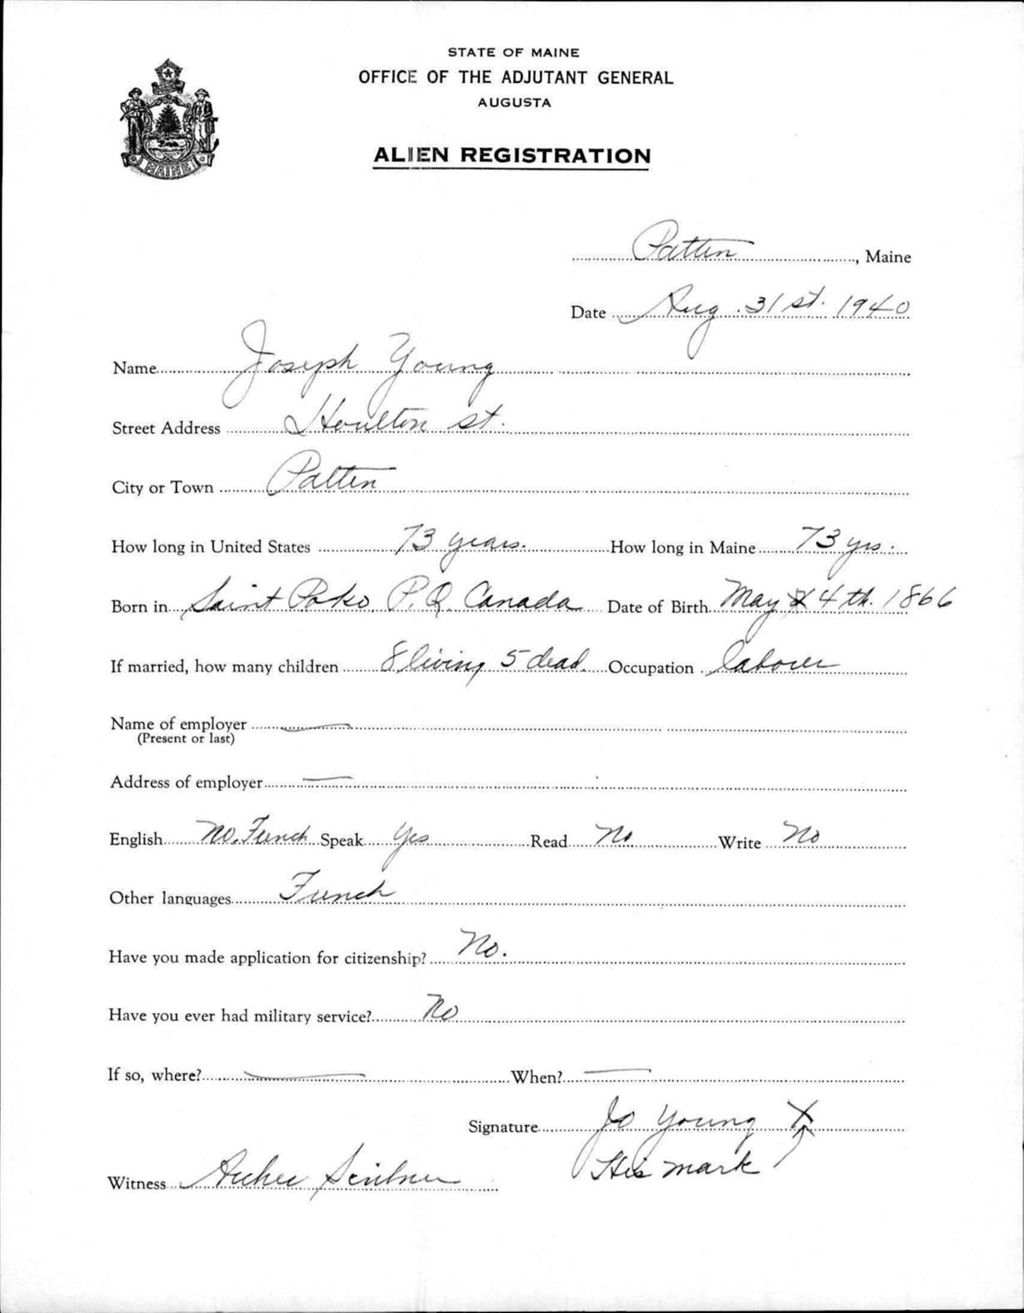 STATE OF MAINE
OFFICE OF THE ADJUTANT GENERAL
AUGUSTA
ALIEN REGISTRATION
MAINE
Patten, Maine
Date Aug. 31st. 1940
Name Joseph Young
Street Address Houlton st.
City or Town Patten
How long in United States 73 years. How long in Maine 73 yrs.
Born in Saint Poko P.Q. Canada Date of Birth May 4th. 1866
If married, how many children 8 living 5 dead. Occupation laborer
Name of employer —
(Present or last)
Address of employer —
English No. French Speak Yes Read No. Write No
Other languages French
Have you made application for citizenship? No.
Have you ever had military service? No
If so, where? — When? —
Signature Jo Young X
His mark
Witness Archie Scribner